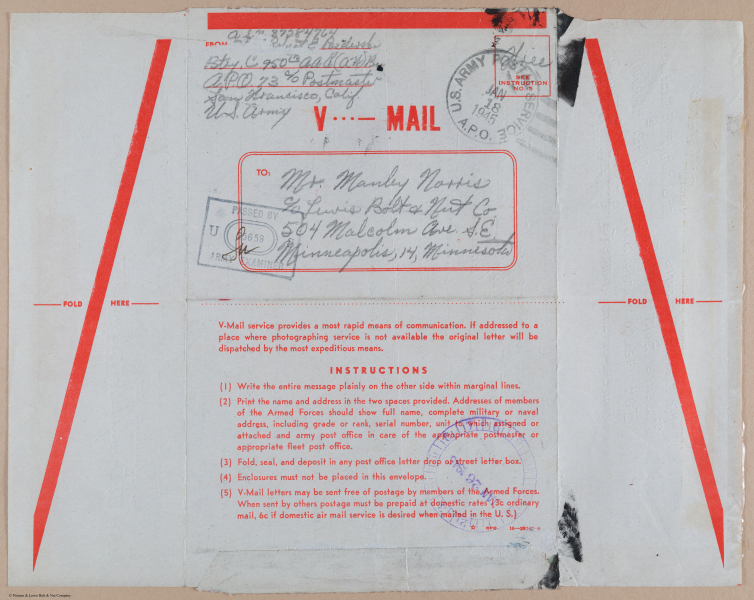 FROM
Btry. C 950th AAA
A.P.O. 73 c/o Postmaster
San Francisco, Calif
U.S. Army
Free
SEE
INSTRUCTION
NO. 5
U.S. ARMY POSTAL SERVICE
JAN
18
1945
A.P.O.
V ···— MAIL
TO:
Mr. Manley Norris
c/o Lewis Bolt & Nut Co
504 Malcolm Ave S.E.
Minneapolis, 14, Minnesota
PASSED BY
U
ARMY EXAMINER
FOLD HERE
FOLD HERE
V-Mail service provides a most rapid means of communication. If addressed to a
place where photographing service is not available the original letter will be
dispatched by the most expeditious means.
INSTRUCTIONS
(1) Write the entire message plainly on the other side within marginal lines.
(2) Print the name and address in the two spaces provided. Addresses of members
of the Armed Forces should show full name, complete military or naval
address, including grade or rank, serial number, unit to which assigned or
attached and army post office in care of the appropriate postmaster or
appropriate fleet post office.
(3) Fold, seal, and deposit in any post office letter drop or street letter box.
(4) Enclosures must not be placed in this envelope.
(5) V-Mail letters may be sent free of postage by members of the Armed Forces.
When sent by others postage must be prepaid at domestic rates (3c ordinary
mail, 6c if domestic air mail service is desired when mailed in the U. S.)